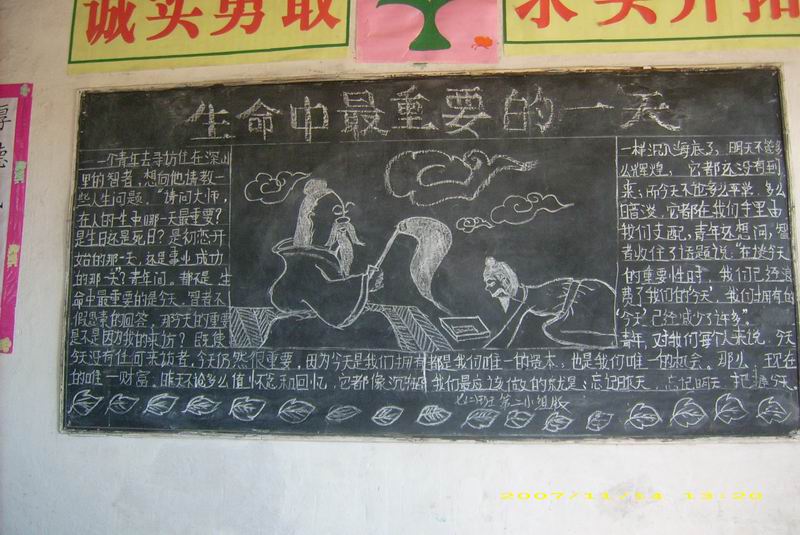 诚实勇敢
求实开拓
生命中最重要的一天
一个青年去寻访住在深山
里的智者,想向他请教一
些人生问题。“请问大师,
在人的一生中哪一天最重要?
是生日还是死日?是初恋开
始的那一天,还是事业成功
的那一天”?青年问。都不是 生
命中最重要的是今天。智者不
假思索的回答。那今天的重要
是不是因为我的来访?即使
今天没有任何来访者,今天仍然很重要,因为今天是我们拥有
的唯一财富。昨天不论多么值得怀念和回忆,它都像沉船
一样沉入海底了,明天不论多
么辉煌,它都还没有到
来;而今天不论多么平常,多么
暗淡,它都在我们手里由
我们支配,青年还想问,智
者收住了话题说“在谈今天
的重要性时,我们已经浪
费了我们的“今天”,我们拥有的
“今天”已经减少了许多”。
青年,对我们每个人来说,今天
都是我们唯一的资本,也是我们唯一的机会。那么,现在
我们最应该做的就是:忘记昨天,忘记明天,把握今天。
七(二)班 第二小组版
2007/11/14 13:20